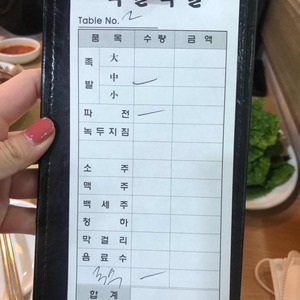 Table No. 2
품 목 수 량 금 액
족 발 大
中
小
파 전
녹두지짐
소 주
맥 주
백 세 주
청 하
막 걸 리
음 료 수
합 계